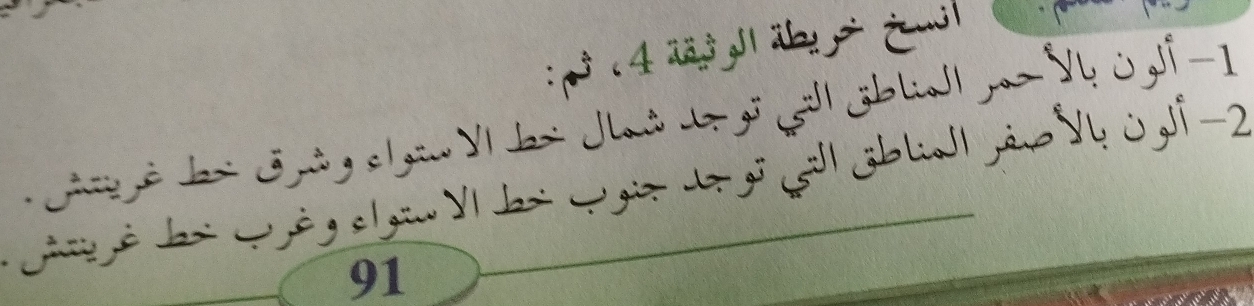 أنسخ خريطة الوثيقة 4، ثم:
1- ألون بالأحمر المناطق التي توجد شمال خط الاستواء وشرق خط غرينتش.
2- ألون بالأصفر المناطق التي توجد جنوب خط الاستواء وغرب خط غرينتش.
91